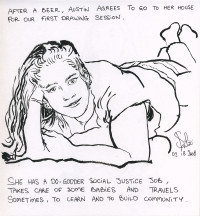 AFTER A BEER, AUSTIN AGREES TO GO TO HER HOUSE
FOR OUR FIRST DRAWING SESSION.
SHE HAS A DO-GOODER SOCIAL JUSTICE JOB,
TAKES CARE OF SOME BABIES AND TRAVELS
SOMETIMES, TO LEARN AND TO BUILD COMMUNITY.